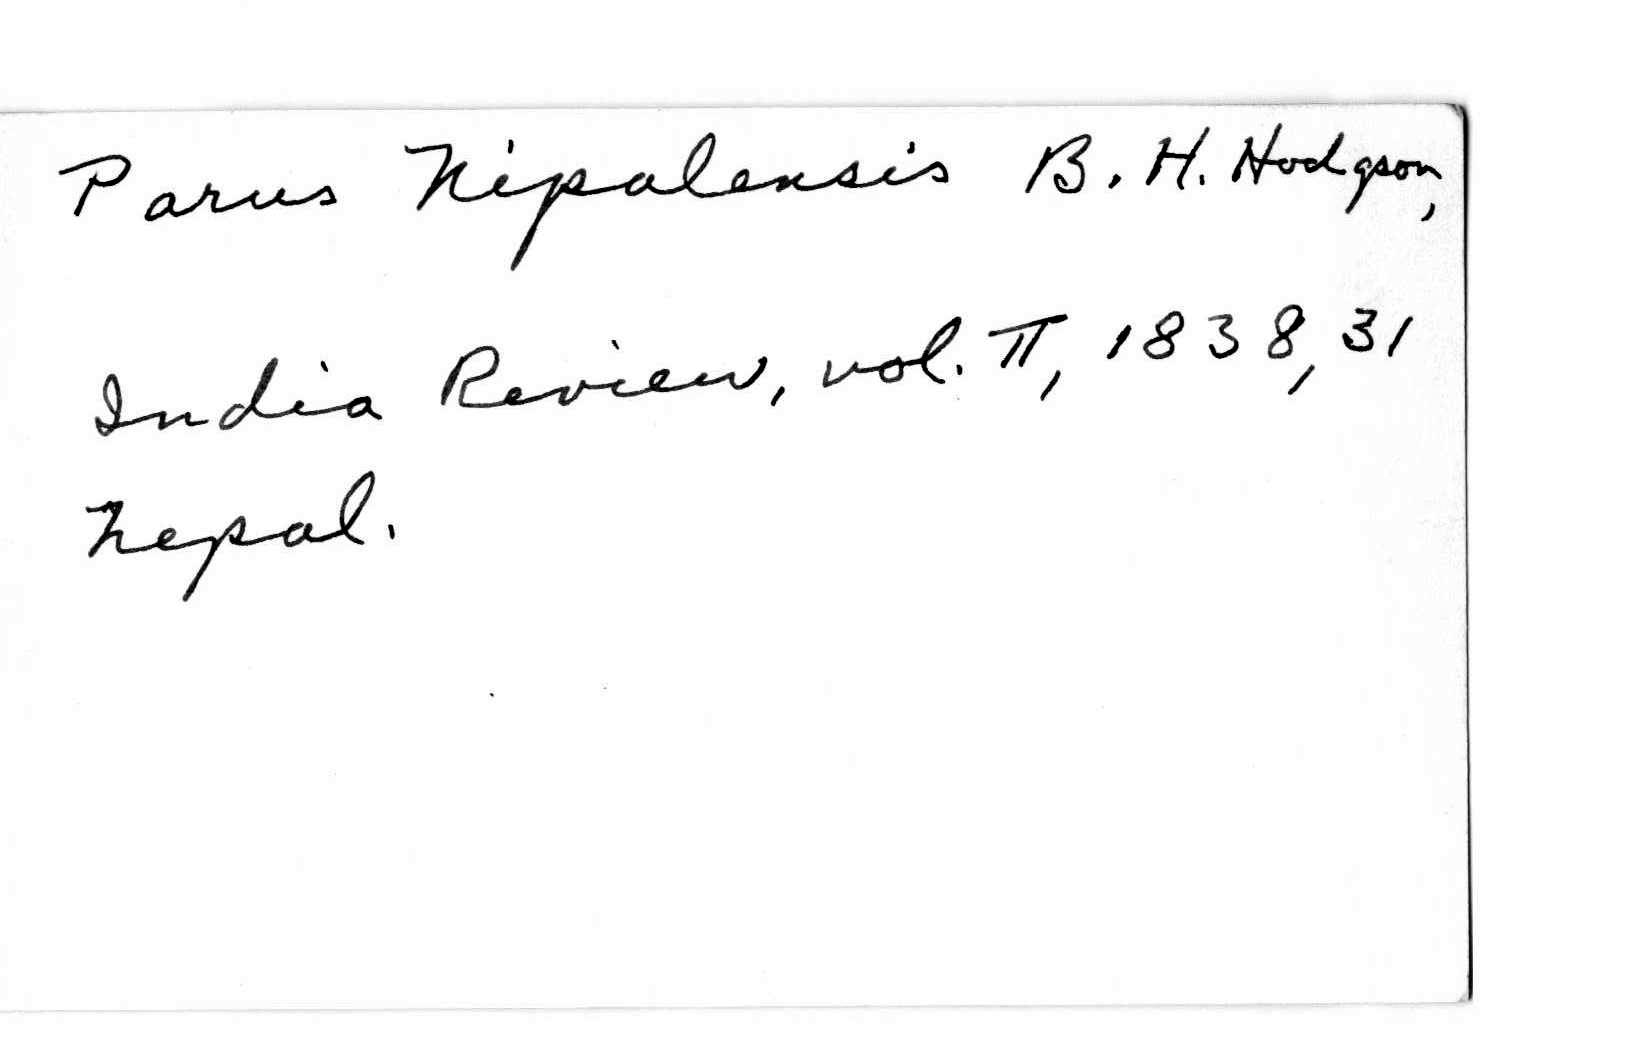 Parus Nipalensis B. H. Hodgson,
India Review, vol. II, 1838, 31
Nepal.